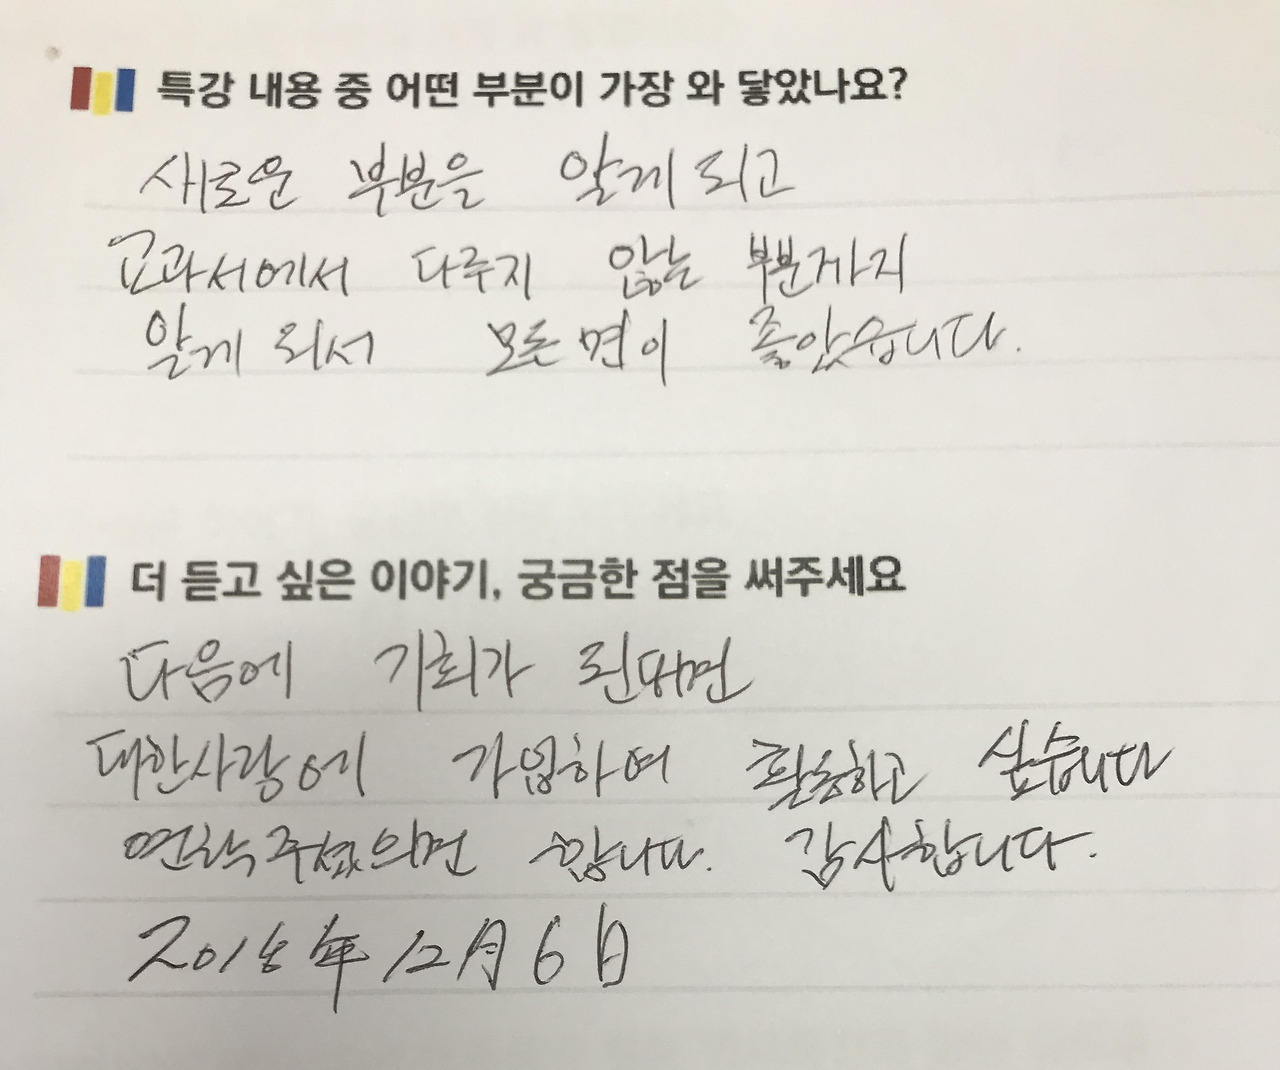 특강 내용 중 어떤 부분이 가장 와 닿았나요?
새로운 부분을 알게 되고
교과서에서 다루지 않는 부분까지
알게 되서 모든 면이 좋았습니다.
더 듣고 싶은 이야기, 궁금한 점을 써주세요
다음에 기회가 된다면
대한사랑에 가입하여 활동하고 싶습니다
연락주셨으면 합니다. 감사합니다.
2018年 12月 6日